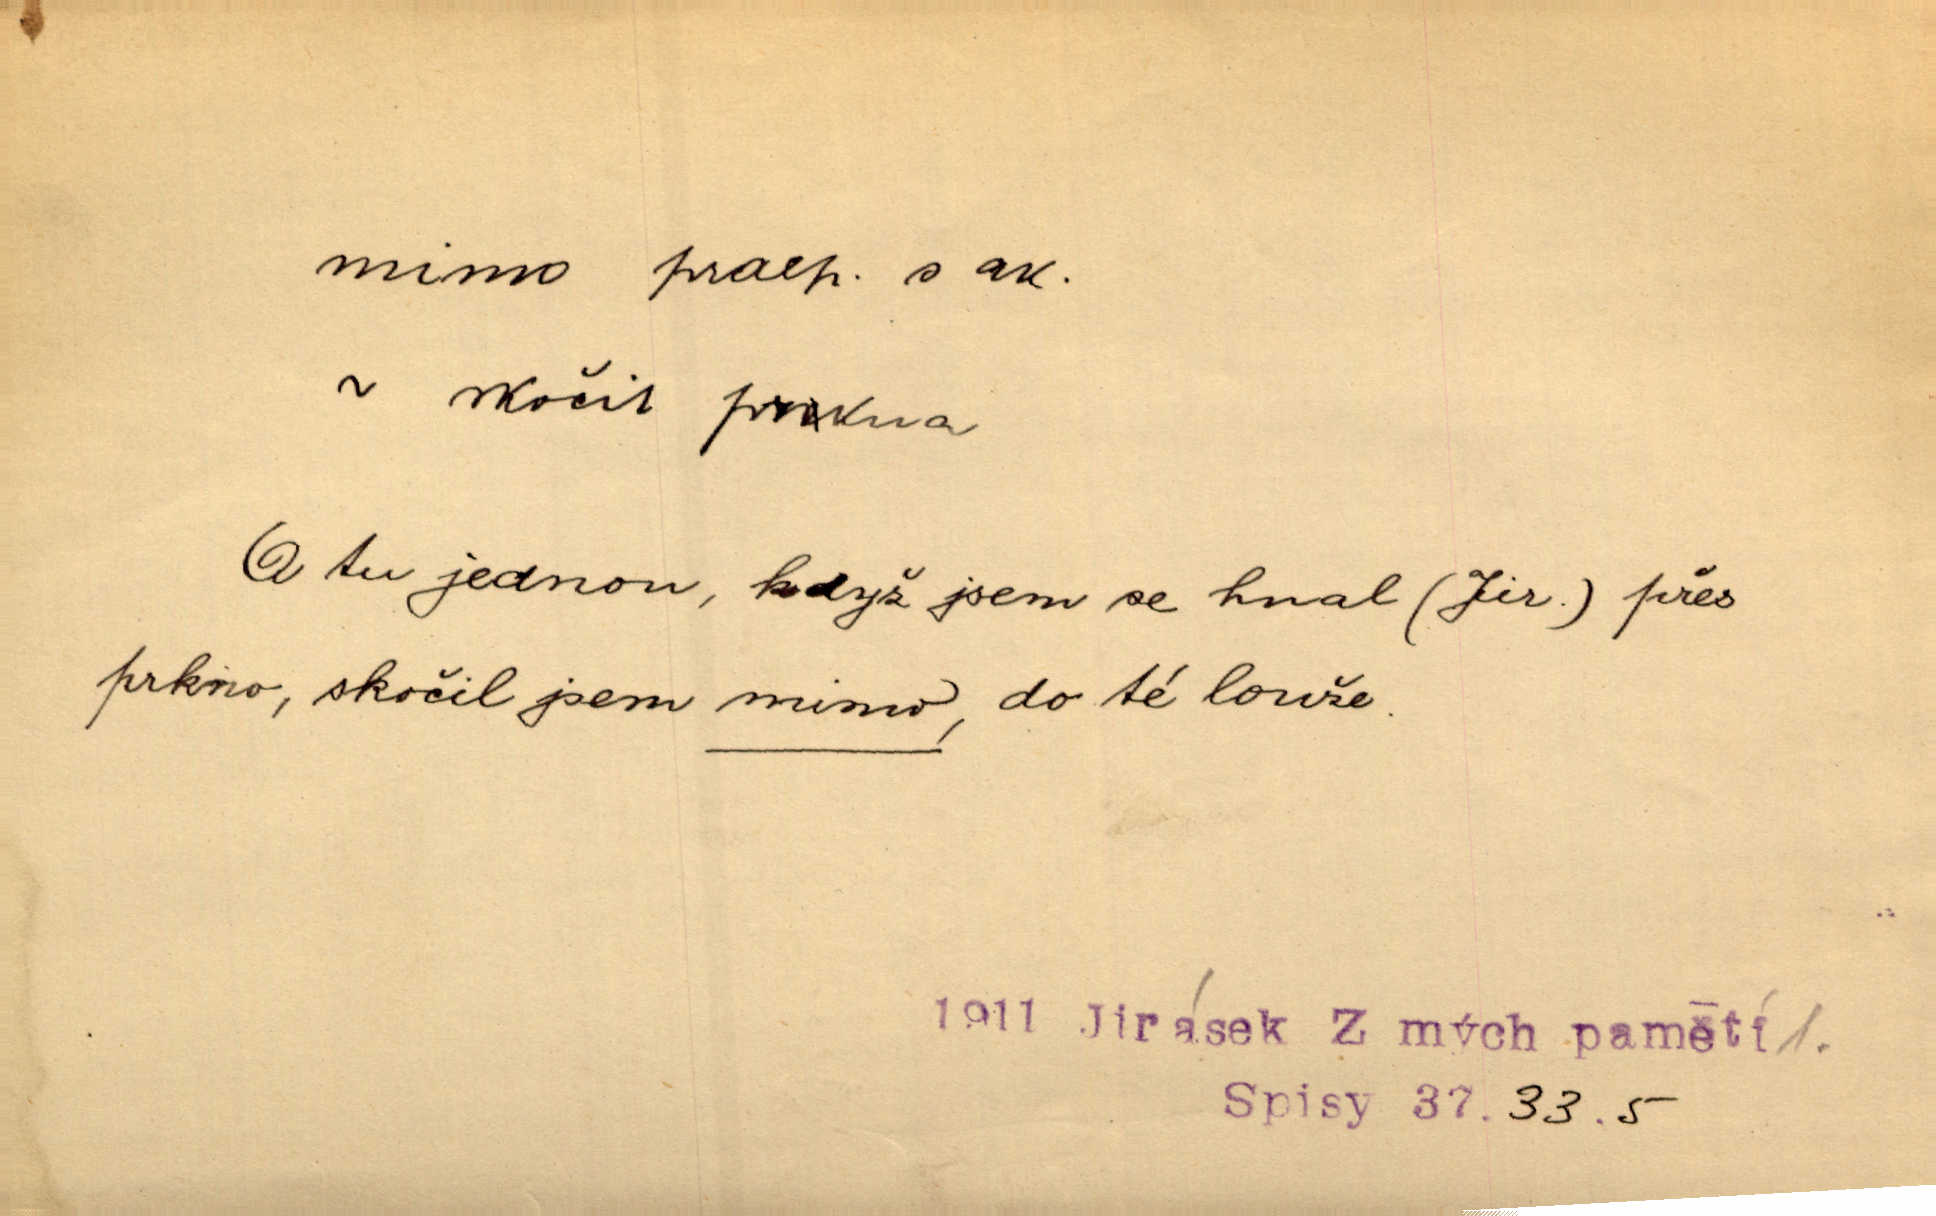 mimo praep. s ak.
~ skočit prkna
A tu jednou, když jsem se hnal (Jir.) přes
prkno, skočil jsem mimo, do té louže.
1911 Jirásek Z mých pamětí 1.
Spisy 37. 33. 5